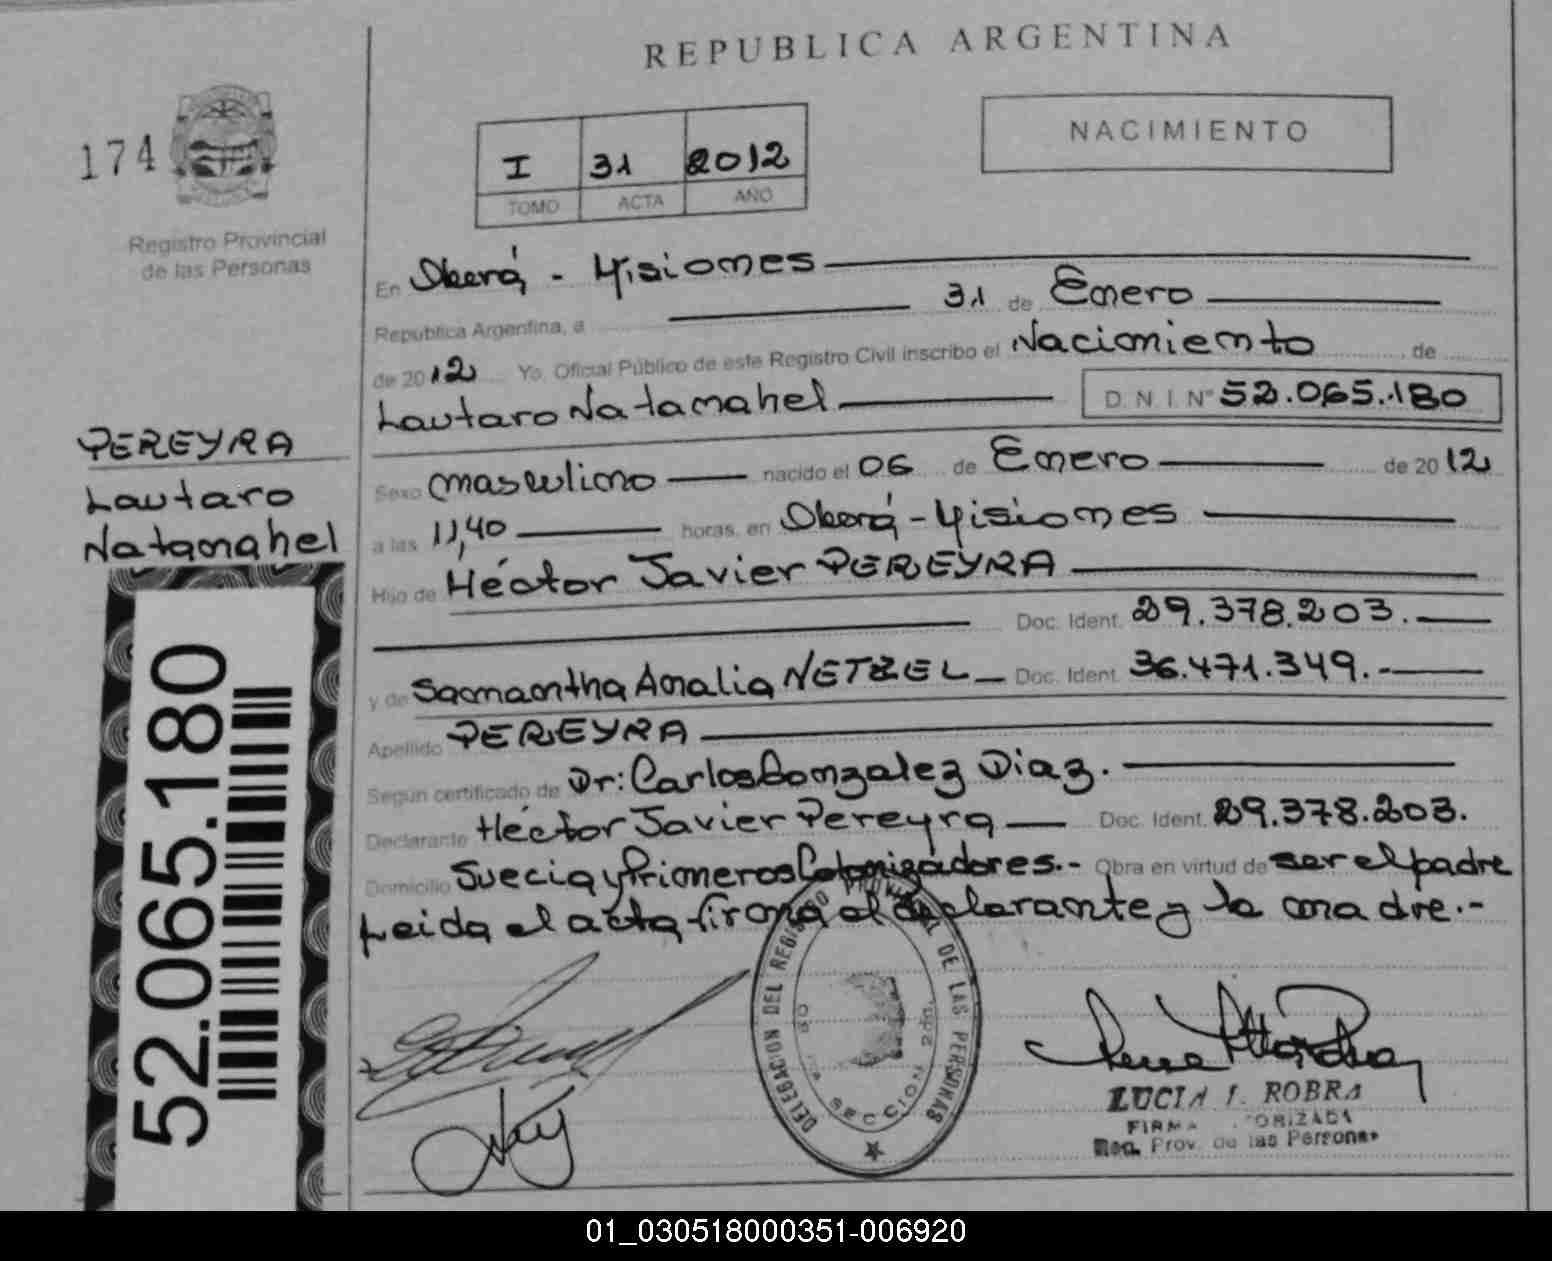 REPUBLICA ARGENTINA
174
Registro Provincial
de las Personas
I 31 2012
TOMO ACTA AÑO
NACIMIENTO
En Oberá - Misiones
Republica Argentina, a 31 de Enero
de 2012 Yo, Oficial Público de este Registro Civil inscribo el Nacimiento de
Lautaro Natanahel D.N.I. Nº 52.065.180
PEREYRA
Lautaro
Natanahel
Sexo masculino nacido el 06 de Enero de 2012
a las 11,40 horas, en Oberá - Misiones
Hijo de Héctor Javier PEREYRA
Doc. Ident. 29.378.203.
y de Samantha Analia NETZEL Doc. Ident. 36.471.349.-
Apellido PEREYRA
Según certificado de Dr: Carlos Gonzalez Diaz.
Declarante Héctor Javier Pereyra Doc. Ident. 29.378.203.
Domicilio Suecia y Primeros Colonizadores.- Obra en virtud de ser el padre
Leida el acta firma el declarante y la madre.-
52.065.180
DELEGACION DEL REGISTRO PROVINCIAL DE LAS PERSONAS
SECCION 2da.
LUCIA I. ROBRA
FIRMA AUTORIZADA
Reg. Prov. de las Personas
01_030518000351-006920